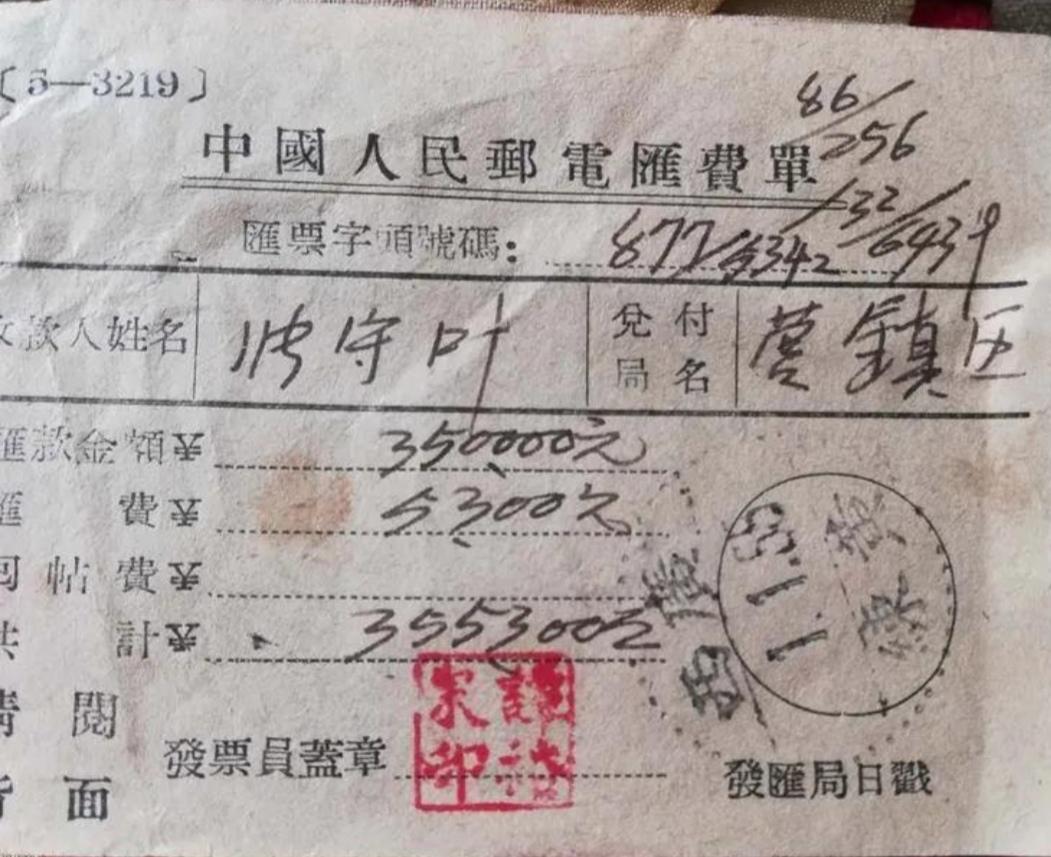 〔5—3219〕
86/256
中國人民郵電匯費單
匯票字頭號碼：
收款人姓名 守叶 兌付局名 营鎮区
匯款金額 350000元
匯費 5300元
回帖費
共計 355300元
請閱
背面
發票員蓋章 印
1.1.53
發匯局日戳